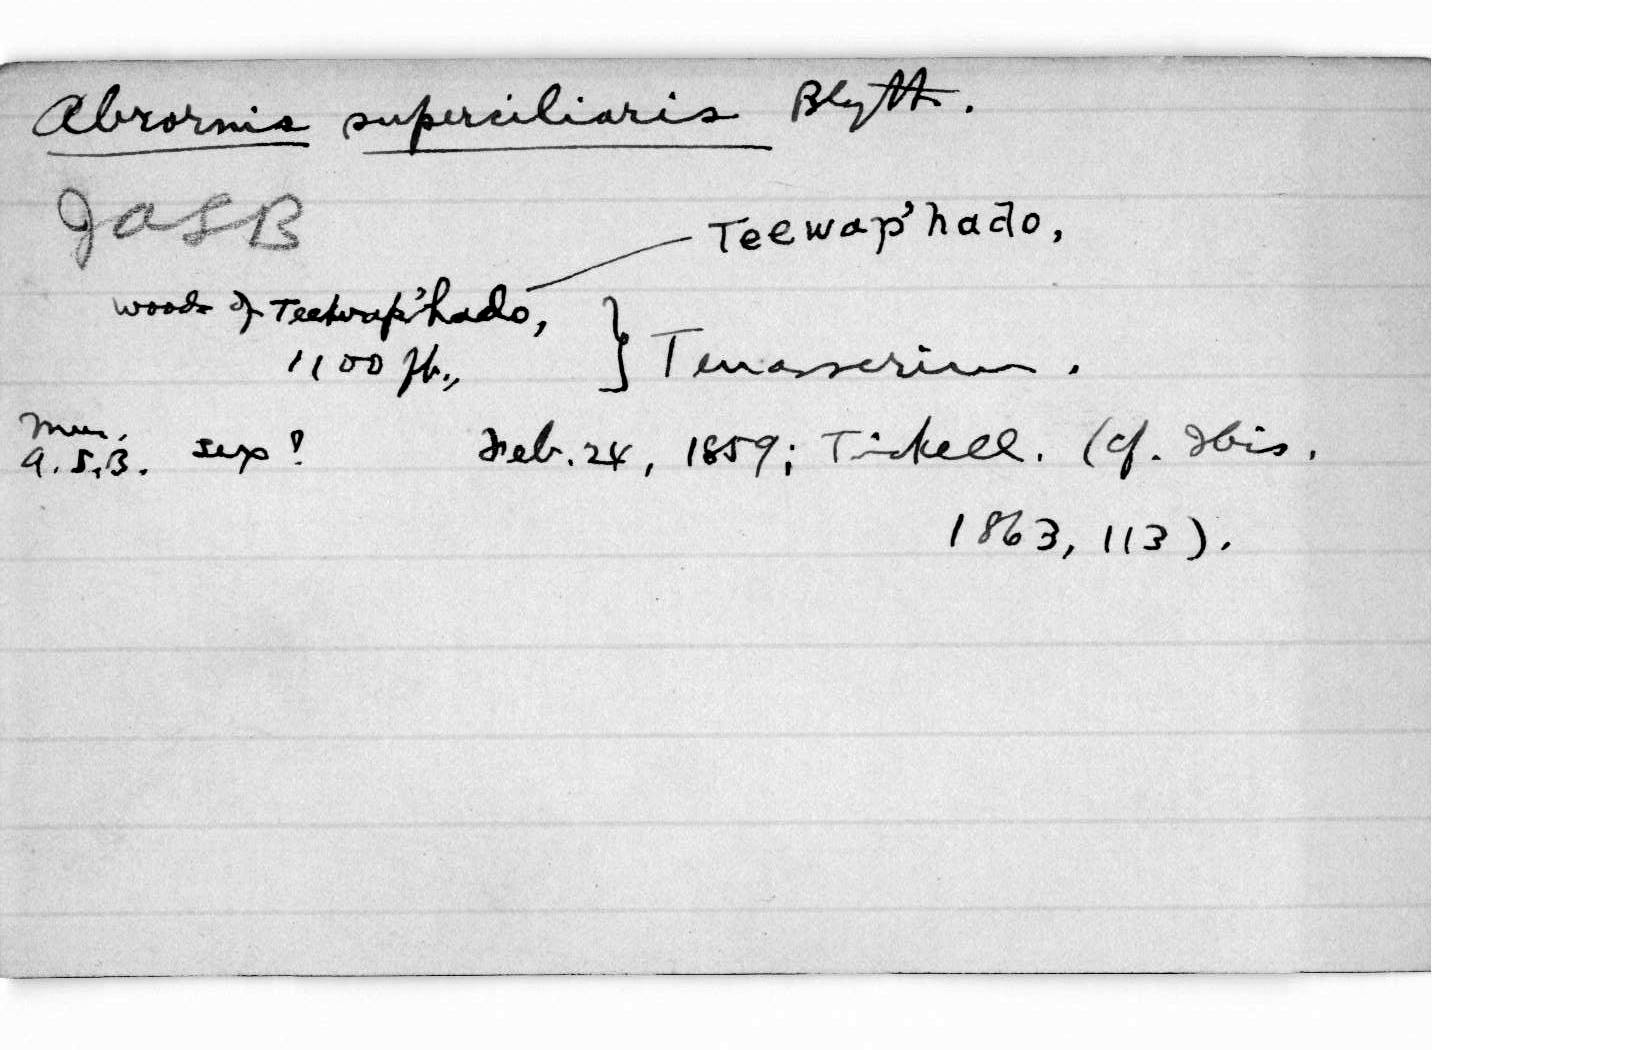 Abrornis superciliaris Blyth.
JASB
Teewap'hado,
woods of Teewap'hado,
1100 ft.,
} Tenasserim.
Mus.
A.S.B. sex? Feb. 24, 1859; Tickell. (cf. Ibis,
1863, 113).